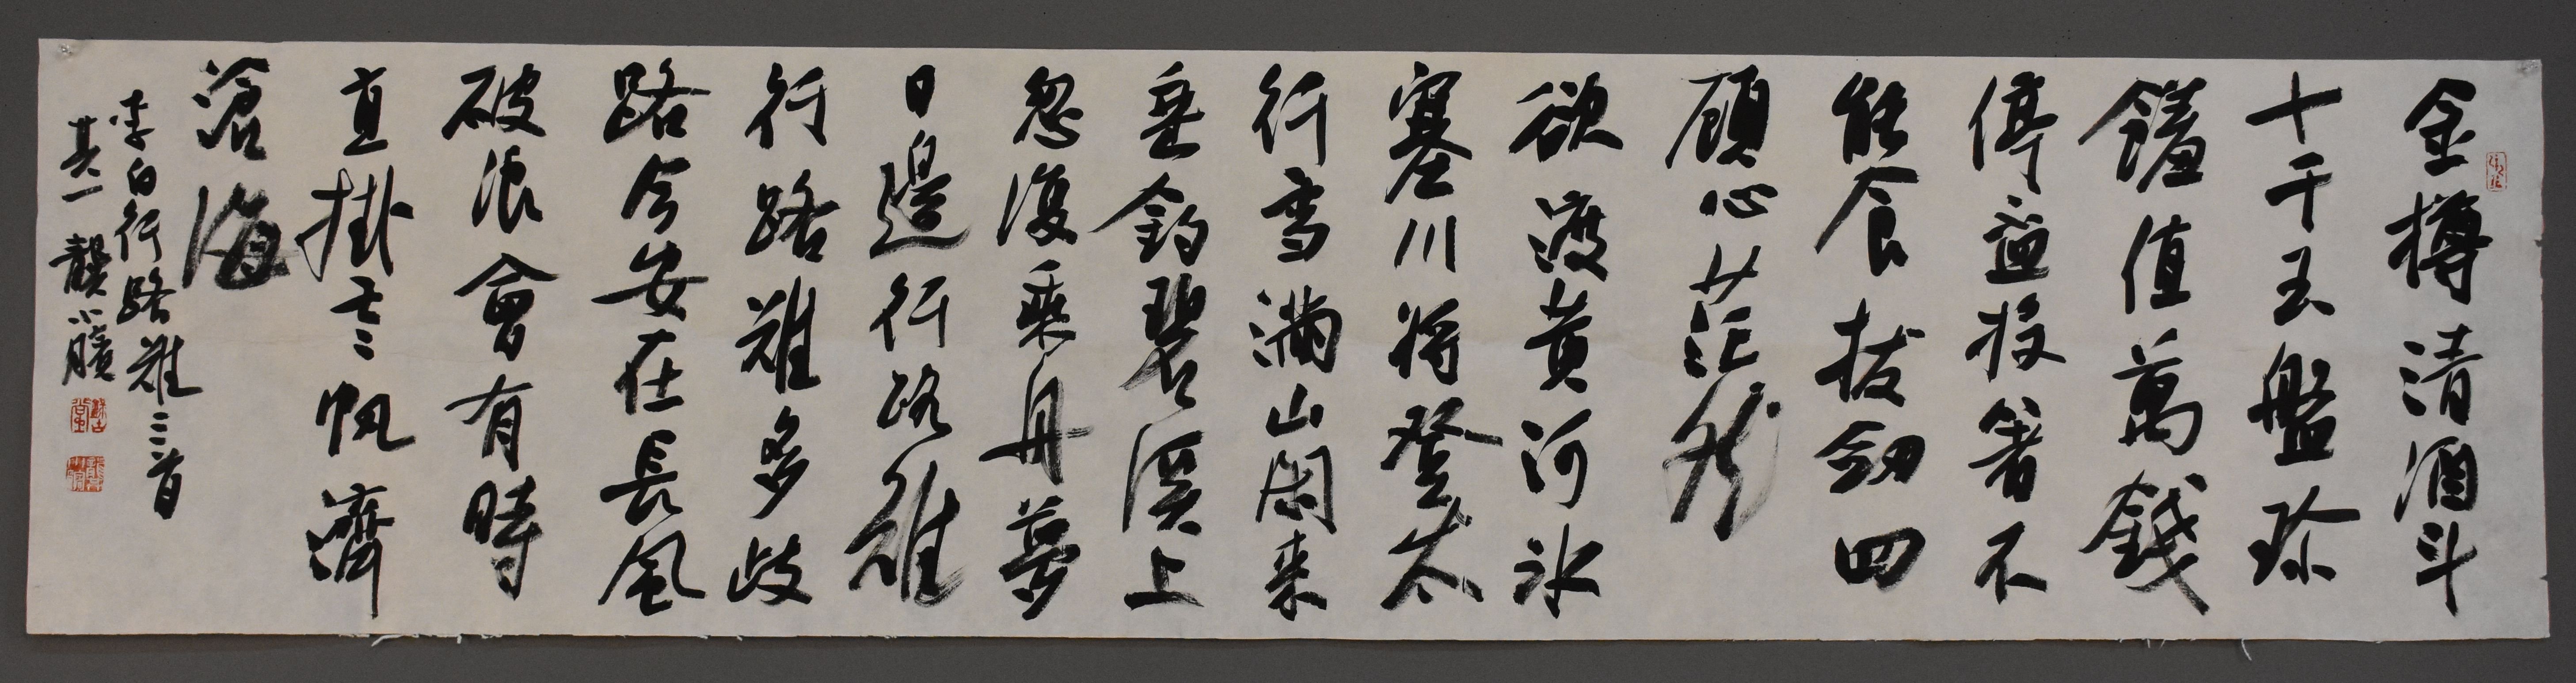 金樽清酒斗
十千玉盤珍
饈值萬錢
停盃投箸不
能食拔劍四
顧心茫然
欲渡黃河冰
塞川將登太
行雪滿山閑来
垂釣碧溪上
忽復乘舟夢
日邊行路難
行路難多歧
路今安在長風
破浪會有時
直掛云帆濟
滄海
李白行路難三首
其一 龔小